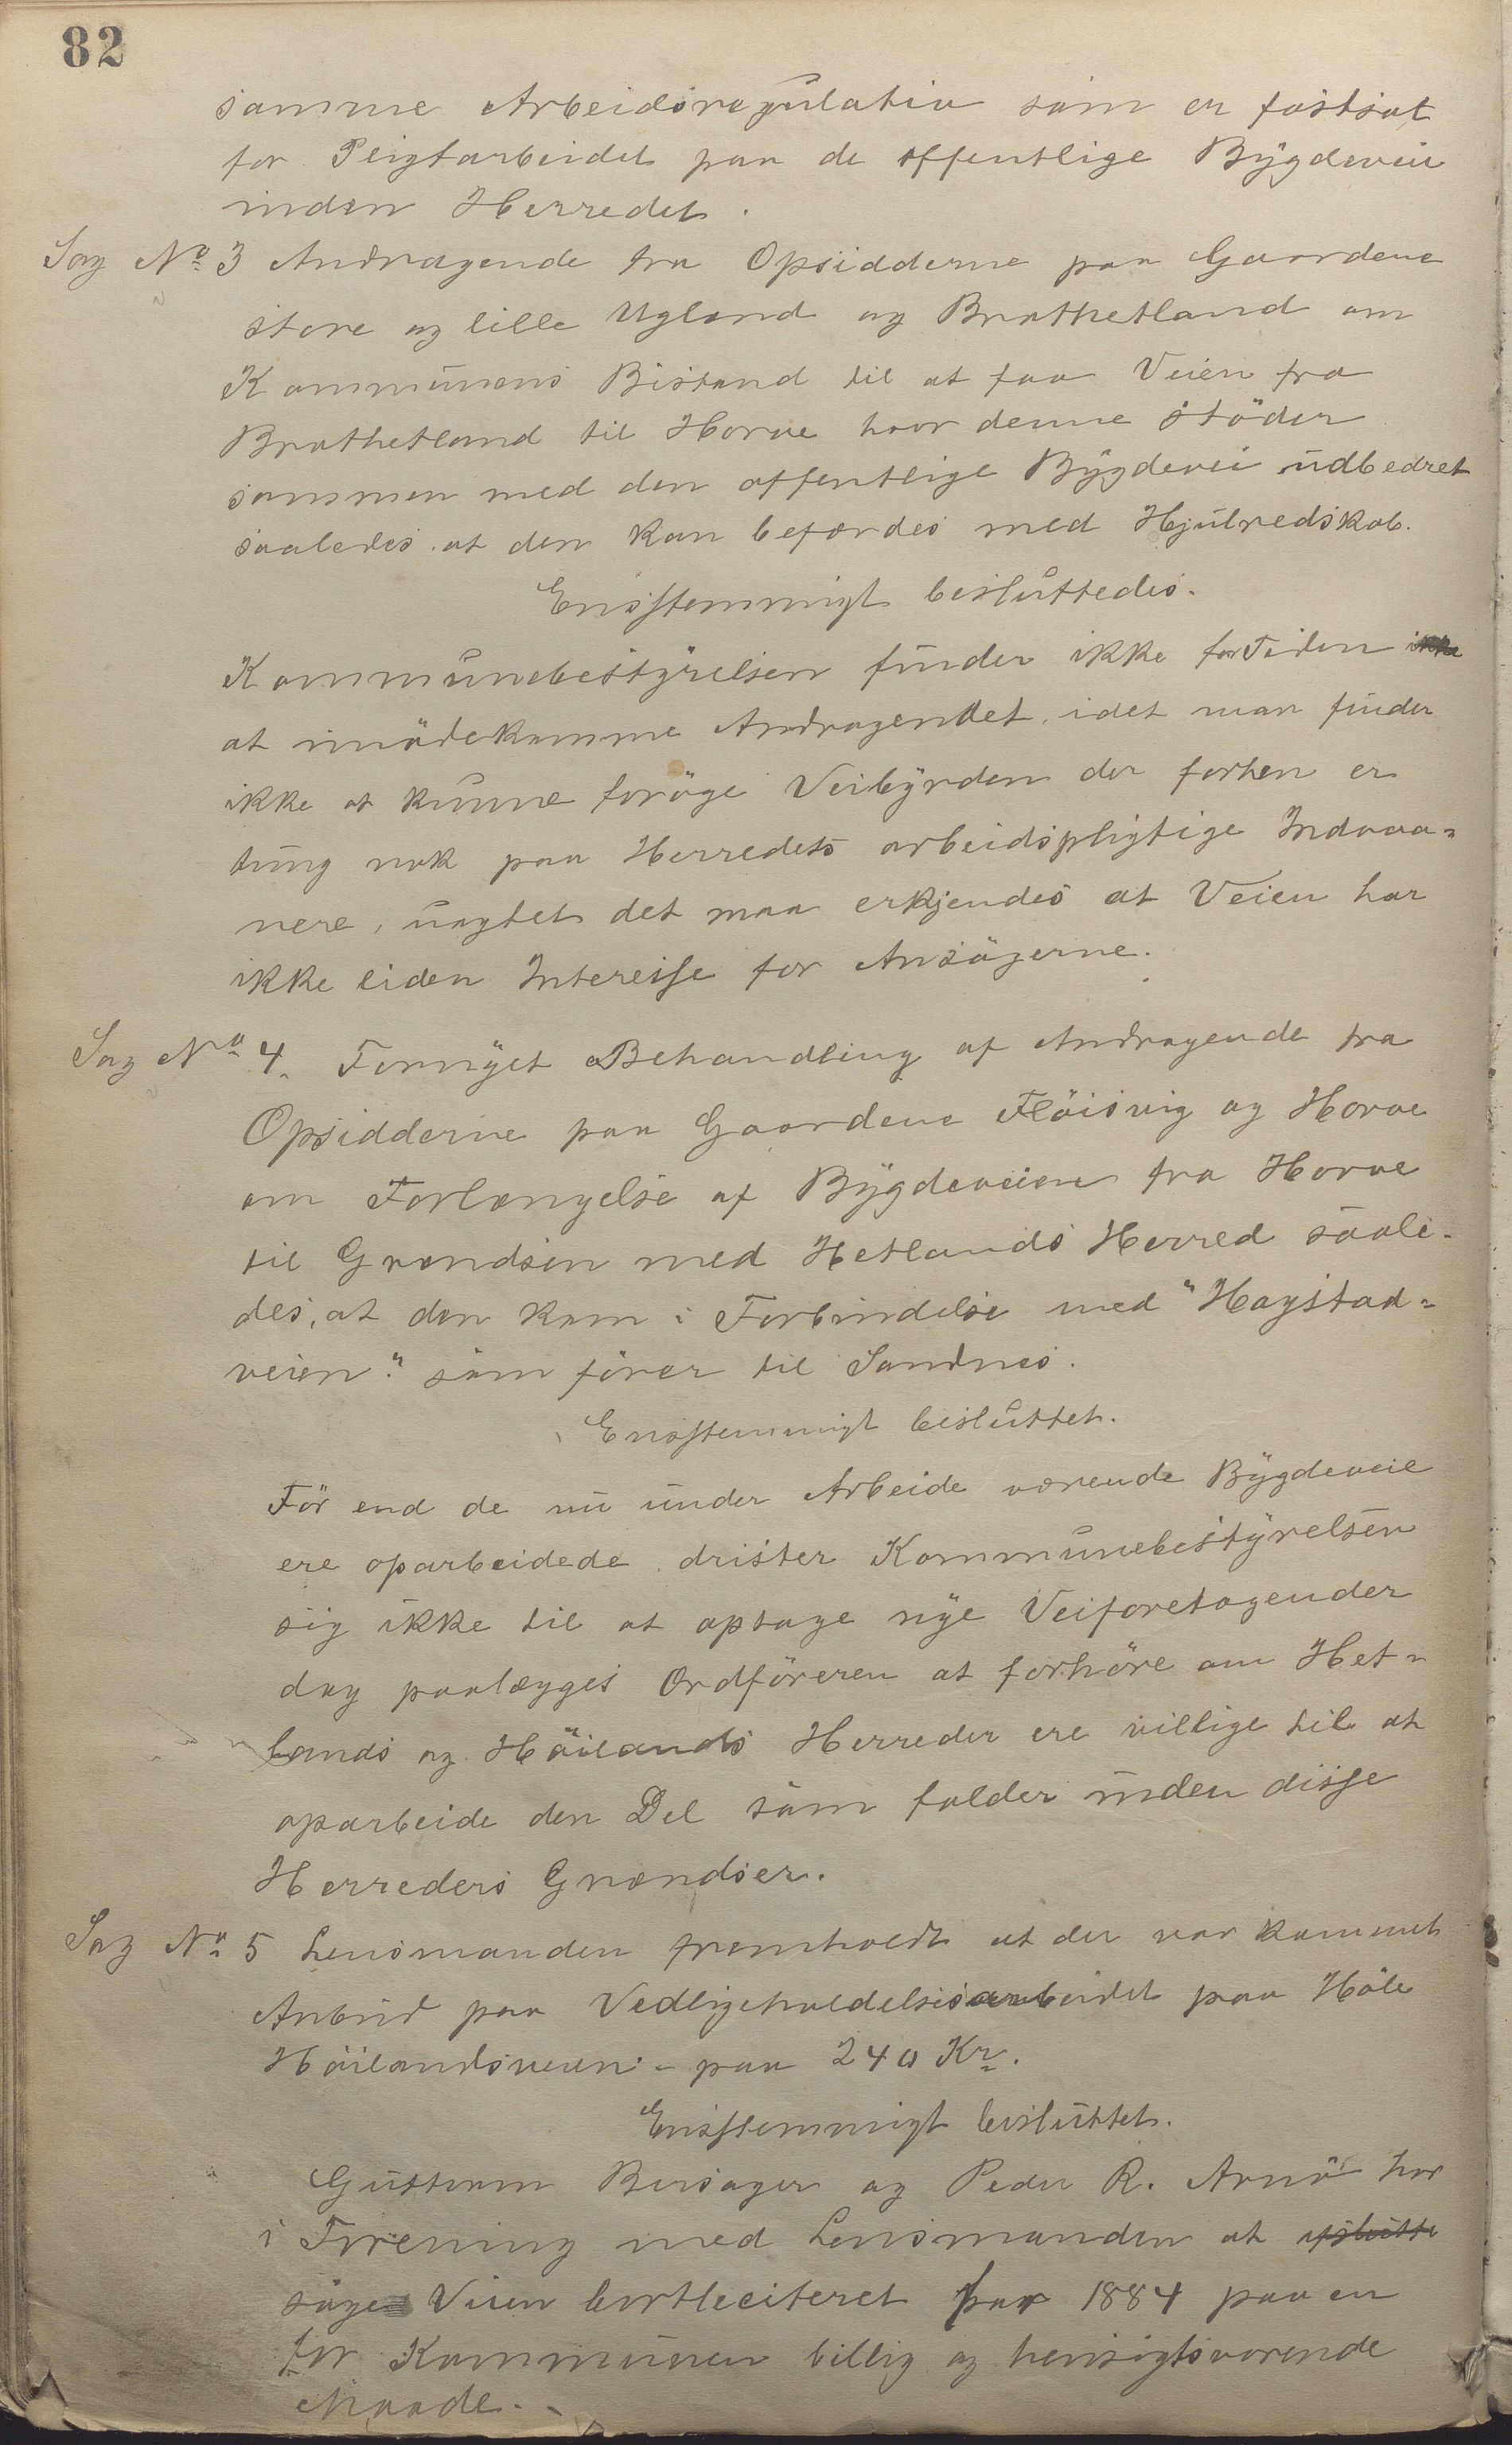 82
samme Arbeidsregulativ som er fastsat
for Pligtarbeidet paa de offentlige Bygdeveie
inden Herredet.
Sag No 3 Andragende fra Opsidderne paa Gaardene
store og lille Ugland og Brathetland om
Kommunens Bistand til at faa Veien fra
Brathetland til Horve hvor denne stöder
sammen med den offentlige Bygdevei udbedret
saaledes at den kan befærdes med Hjulredskab.
Enstemmigt besluttedes.
Kommunebestyrelsen finder ikke for Tiden ikke
at imödekomme Andragendet, idet man finder
ikke at kunne foröge Veibyrden der forhen er
tung nok paa Herredets arbeidspligtige Indvaa=
nere, uagtet det maa erkjendes at Veien har
ikke liden Interesse for Ansögerne.
Sag No 4. Fornyet Behandling af Andragende fra
Opsidderne paa Gaardene Flöisvig og Horve
om Forlængelse af Bygdeveien fra Horve
til Grændsen med Hetlands Herred saale-
des, at den kom i Forbindelse med "Hogstad=
veien" som förer til Sandnes.
Enstemmigt besluttet.
För end de nu under Arbeide værende Bygdeveie
ere oparbeidede drister Kommunebestyrelsen
sig ikke til at optage nye Veiforetagender
dog paalægges Ordföreren at forhöre om Het=
lands og Höilands Herreder ere villige til at
oparbeide den Del som falder inden disse
Herreders Grændser.
Sag No 5 Lensmanden fremholdt at der var kommet
Anbud paa Vedligeholdelsesarbeidet paa Höle
Höilandsveien - paa 240 Kr.
Enstemmigt besluttet.
Guttorm Bersagel og Peder R. Arnö har
i Forening med Lensmanden at afslutte
söge Veien bortliciteret for 1884 paa en
for Kommunen billig og hensigtsvarende
Maade.